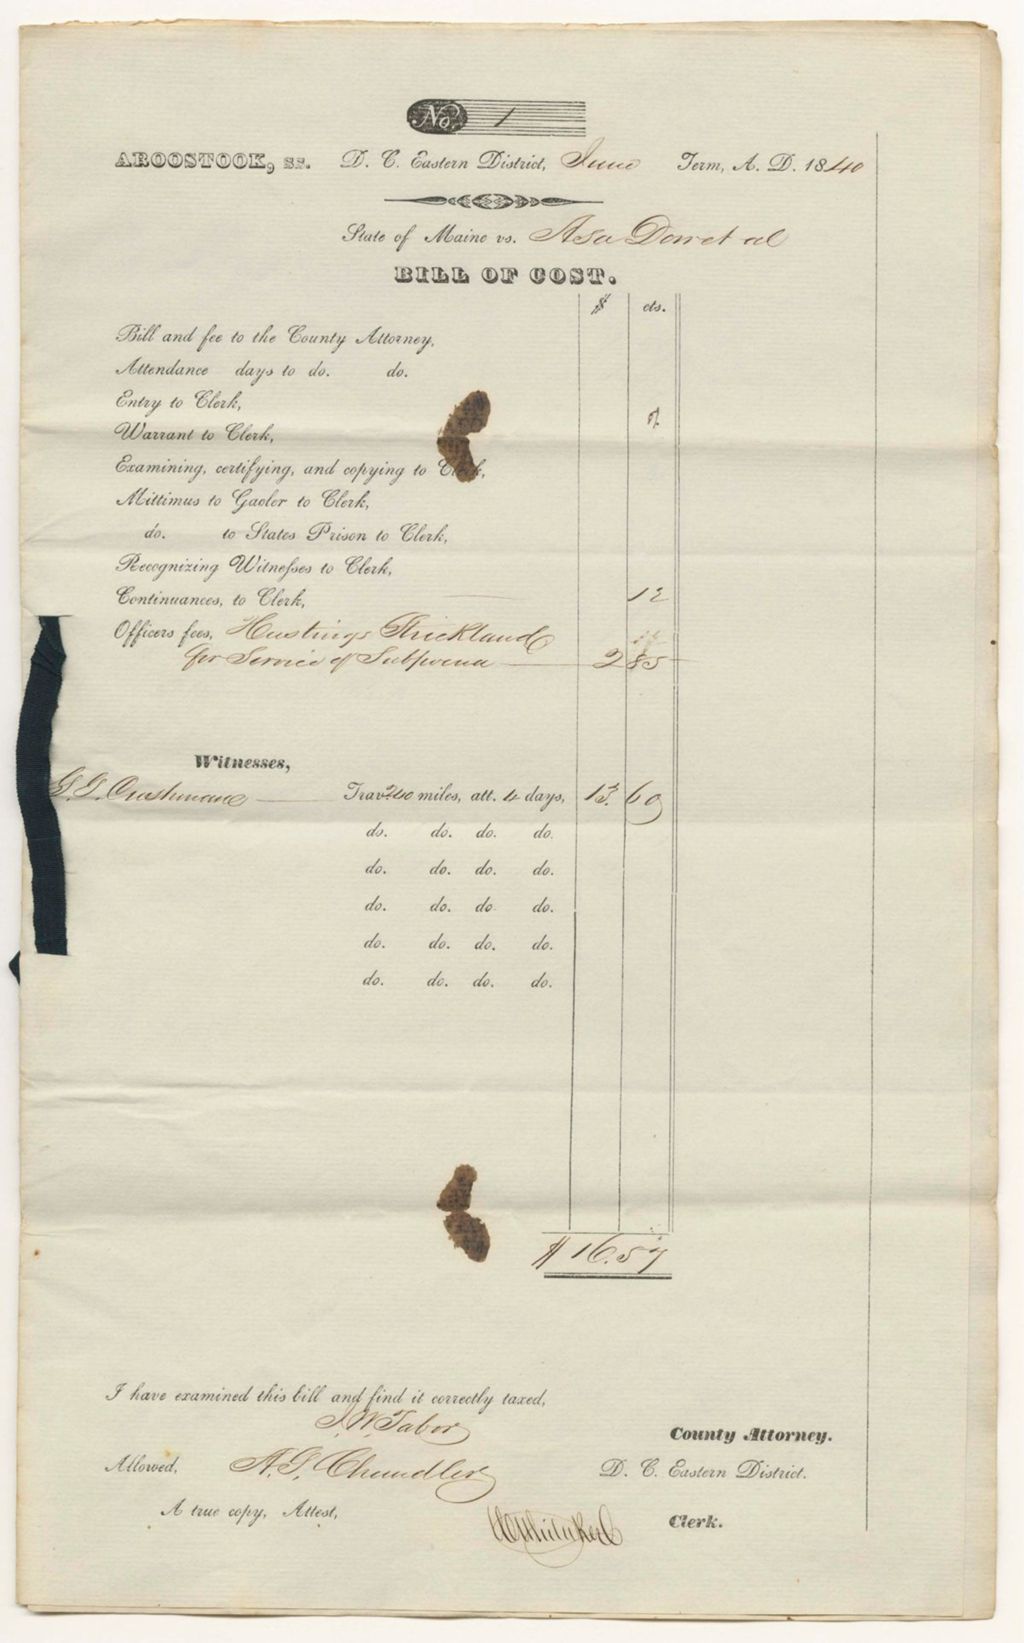 No. 1
AROOSTOOK, ss. D. C. Eastern District, June Term, A. D. 1840
State of Maine vs. Asa Dow et al
BILL OF COST.
$ cts.
Bill and fee to the County Attorney,
Attendance days to do. do.
Entry to Clerk,
Warrant to Clerk,
Examining, certifying, and copying to Clerk,
Mittimus to Gaoler to Clerk,
do. to States Prison to Clerk,
Recognizing Witnesses to Clerk,
Continuances, to Clerk, 12
Officers fees, Hastings Strickland
for Service of Subpoena 2 85
Witnesses,
G. G. Cushman Trav. 240 miles, att. 4 days, 13. 60
do. do. do. do.
do. do. do. do.
do. do. do do.
do. do. do. do.
do. do. do. do.
$ 16.57
I have examined this bill and find it correctly taxed,
J. W. Tabor County Attorney.
Allowed, A. G. Chandler D. C. Eastern District.
A true copy, Attest, Clerk.